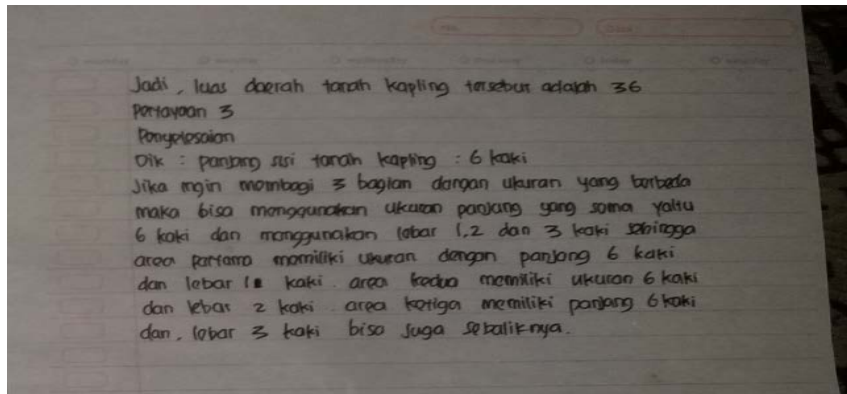 Jadi, luas daerah tanah kapling tersebut adalah 36
Pertayaan 3
Penyelesaian
Dik : panjang sisi tanah kapling : 6 kaki
Jika ingin membagi 3 bagian dangan ukuran yang berbeda
maka bisa menggunakan ukuran panjang yang sama yaitu
6 kaki dan menggunakan lebar 1,2 dan 3 kaki sehingga
area pertama memiliki ukuran dengan panjang 6 kaki
dan lebar 1 kaki. area kedua memiliki ukuran 6 kaki
dan lebar 2 kaki. area ketiga memiliki panjang 6 kaki
dan, lebar 3 kaki bisa juga sebaliknya.